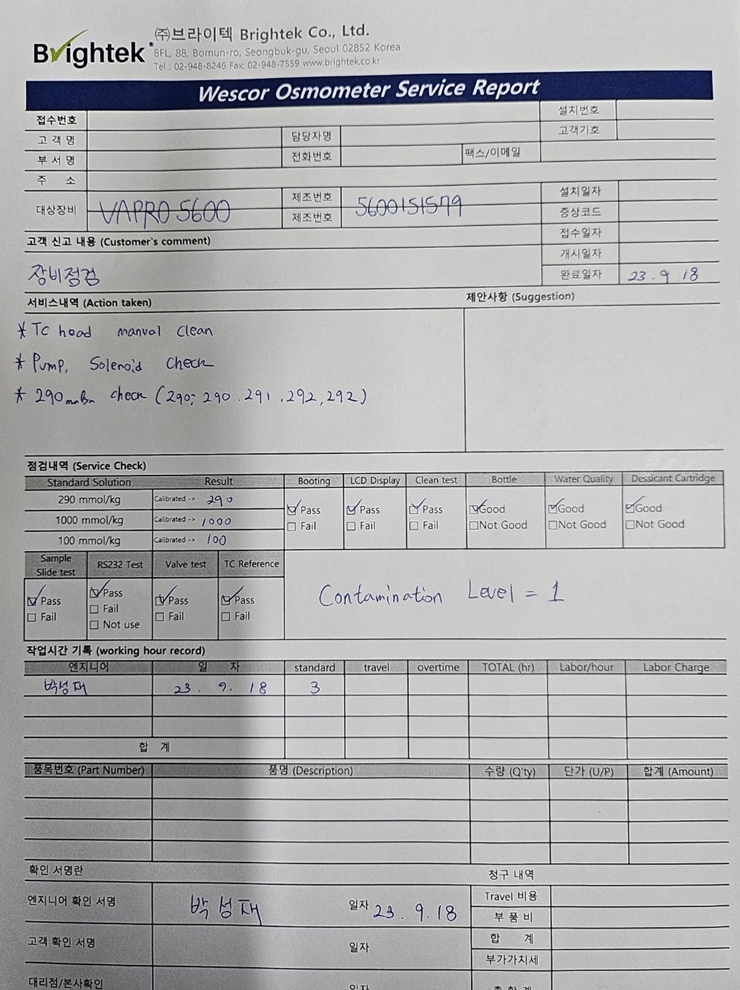 Brightek
㈜브라이텍 Brightek Co., Ltd.
8FL, 88, Bomun-ro, Seongbuk-gu, Seoul 02852 Korea
Tel : 02-948-8246 Fax: 02-948-7559 www.brightek.co.kr
Wescor Osmometer Service Report
접수번호 설치번호
고 객 명 담당자명 고객기호
부 서 명 전화번호 팩스/이메일
주 소
대상장비 VAPRO 5600 제조번호 5600151579 설치일자
제조번호 증상코드
고객 신고 내용 (Customer's comment) 접수일자
개시일자
장비점검 완료일자 23. 9. 18
서비스내역 (Action taken) 제안사항 (Suggestion)
* TC head manual clean
* Pump, Solenoid check
* 290 check (290: 290. 291. 292, 292)
점검내역 (Service Check)
Standard Solution Result Booting LCD Display Clean test Bottle Water Quality Dessicant Cartridge
290 mmol/kg Calibrated -> 290 ☑ Pass ☑ Pass ☑ Pass ☑Good ☑Good ☑Good
1000 mmol/kg Calibrated -> 1000 ☐ Fail ☐ Fail ☐ Fail ☐Not Good ☐Not Good ☐Not Good
100 mmol/kg Calibrated -> 100
Sample Slide test RS232 Test Valve test TC Reference
☑ Pass ☑ Pass ☑ Pass ☑ Pass
☐ Fail ☐ Fail ☐ Fail ☐ Fail
☐ Not use
Contamination Level = 1
작업시간 기록 (working hour record)
엔지니어 일 자 standard travel overtime TOTAL (hr) Labor/hour Labor Charge
박성재 23. 9. 18 3
합 계
품목번호 (Part Number) 품명 (Description) 수량 (Q'ty) 단가 (U/P) 합계 (Amount)
확인 서명란 청구 내역
엔지니어 확인 서명 박성재 일자 23. 9. 18 Travel 비용
부 품 비
고객 확인 서명 일자 합 계
부가가치세
대리점/본사확인 일자 총 합 계